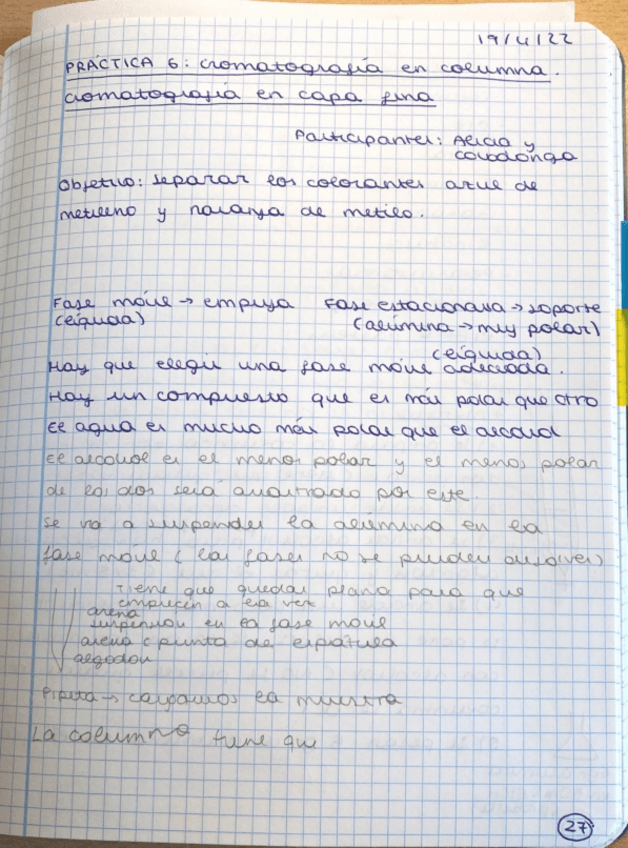 19/4/22
PRÁCTICA 6: cromatografía en columna.
cromatografía en capa fina
Participantes: Alicia y
covadonga
Objetivo: separar los colorantes azul de
metileno y naranja de metilo.
Fase móvil → empuja Fase estacionaria → soporte
(líquida) (alúmina → muy polar)
(líquida)
Hay que elegir una fase móvil adecuada.
Hay un compuesto que es más polar que otro
El agua es mucho más polar que el alcohol
El alcohol es el menos polar y el menos polar
de los dos será arrastrado por este.
Se va a suspender la alúmina en la
fase móvil (las fases no se pueden disolver)
Tiene que quedar plana para que
empiecen a la vez
arena
suspensión en la fase móvil
arena (punta de espátula
algodón
Pipeta → cargamos la muestra
La columna tiene que
27